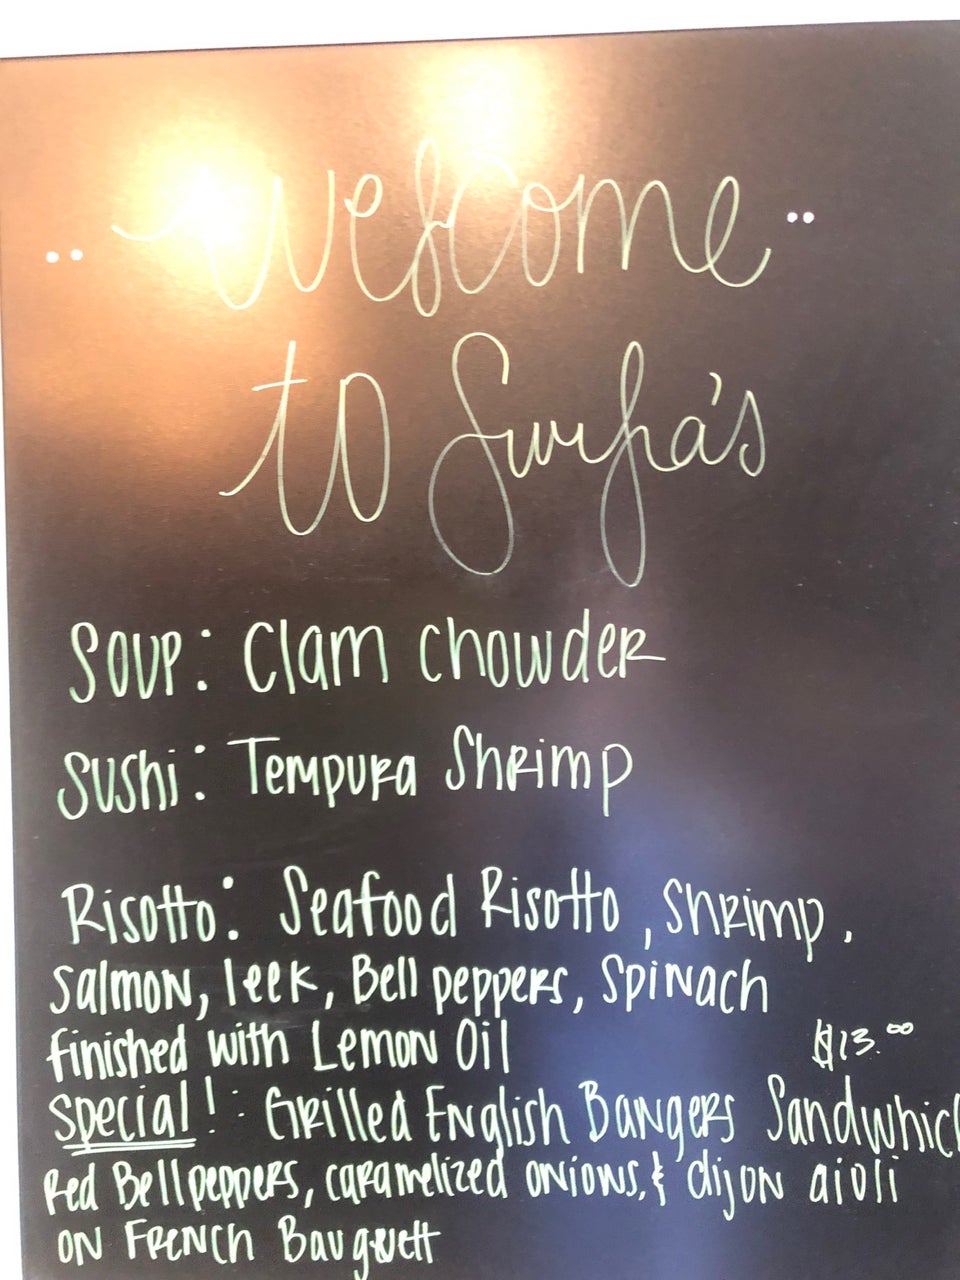 Welcome
to Surfa's
Soup: Clam Chowder
Sushi: Tempura Shrimp
Risotto: Seafood Risotto, Shrimp,
Salmon, leek, Bell peppers, Spinach
finished with Lemon Oil $13.00
Special!: Grilled English Bangers Sandwhic
Red Bell peppers, caramelized onions, & dijon aioli
on French Bauguett